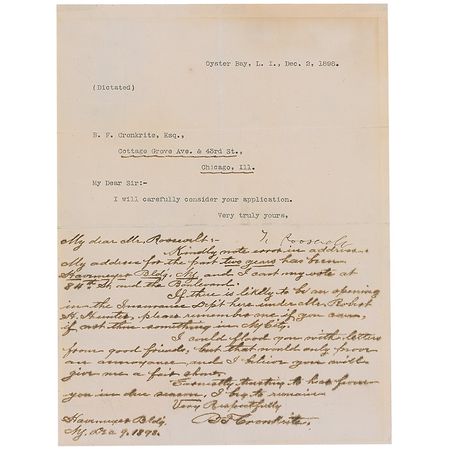 Oyster Bay, L. I., Dec. 2, 1898.
(Dictated)
B. F. Cronkrite, Esq.,
Cottage Grove Ave. & 43rd St.,
Chicago, Ill.
My Dear Sir:-
I will carefully consider your application.
Very truly yours,
T. Roosevelt
My dear Mr. Roosevelt:-
Kindly note error in address.
My address for the past two years has been
Havemeyer Bldg, Ny, and I cast my vote at
84th St. and the Boulevard.
If there is likely to be an opening
in the Insurance Dept here under Mr. Robert
H. Hunter, please remember me if you can,
if not then something in Ny City.
I could flood you with letters
from good friends, but that would only prove
an and I believe you will
give me a fair show.
Earnestly trusting to hear from
you in due season, I beg to remain
Very Respectfully
Havemeyer Bldg. B F Cronkrite.
Ny, Dec 9, 1898.